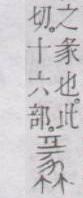 之象也。此
切。十六部。